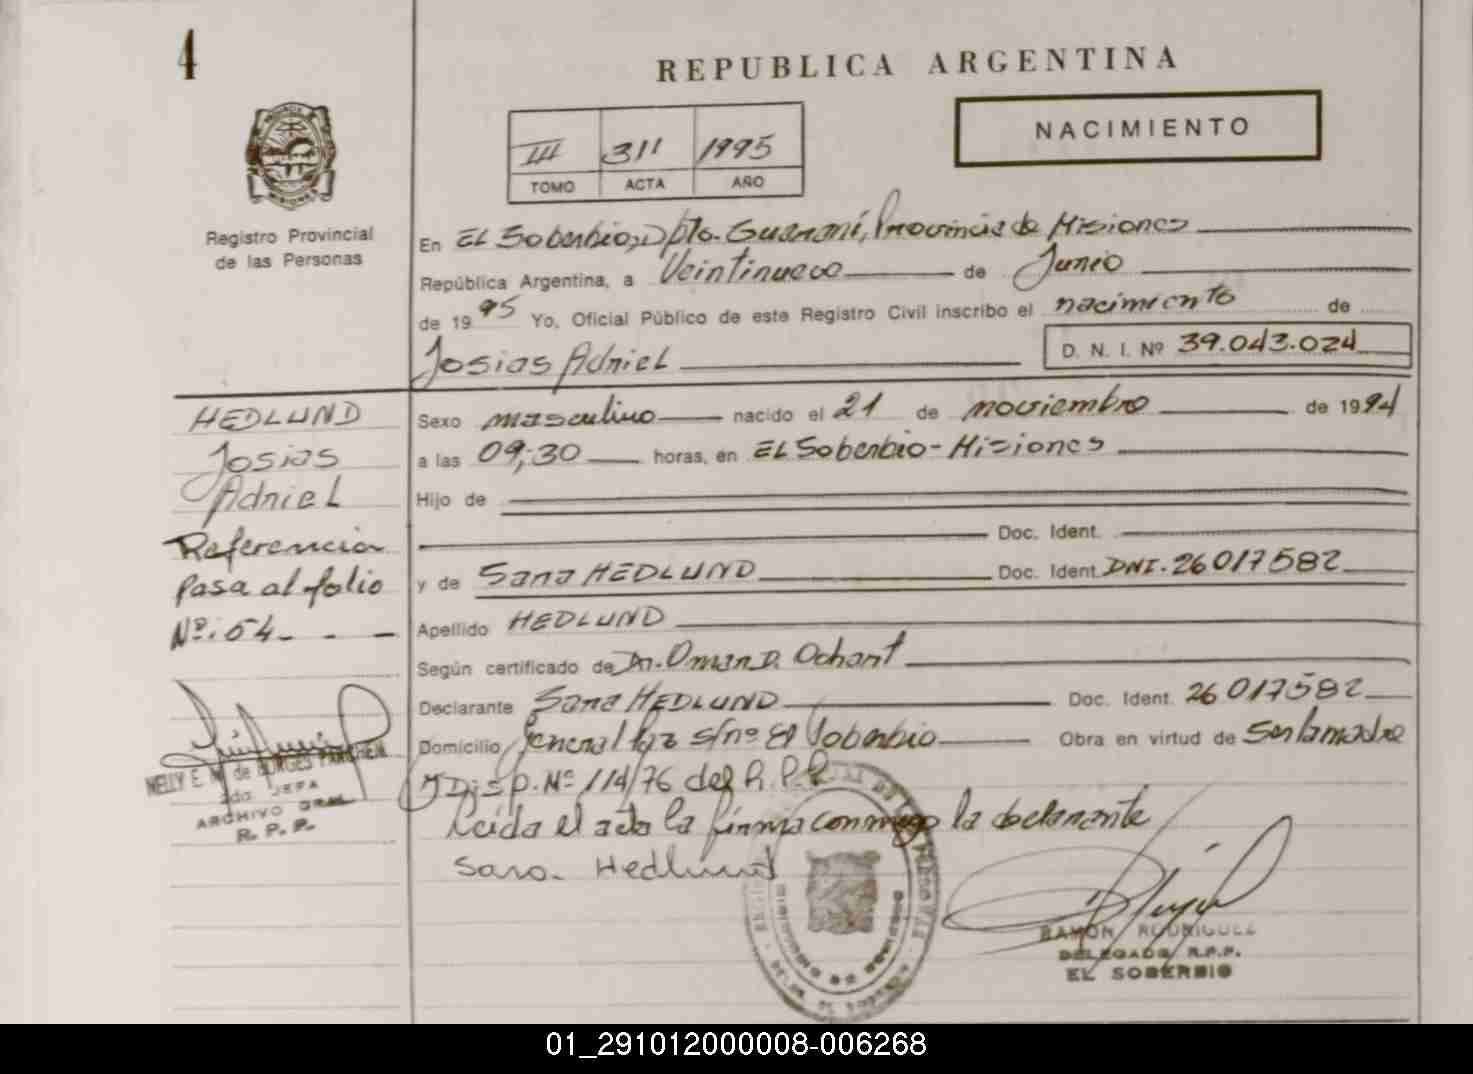 4
REPUBLICA ARGENTINA
NACIMIENTO
III 311 1995
TOMO ACTA AÑO
Registro Provincial
de las Personas
En EL Soberbio, Dpto. Guaraní, Provincia de Misiones
República Argentina, a Veintinueve de Junio
de 1995 Yo, Oficial Público de este Registro Civil inscribo el nacimiento de
Josias Adriel D. N. I. Nº 39.043.024
HEDLUND
Josias
Adriel
Referencia
Pasa al folio
Nº. 54
Sexo masculino nacido el 21 de noviembre de 1994
a las 09;30 horas, en EL Soberbio - Misiones
Hijo de
Doc. Ident.
y de Sara HEDLUND Doc. Ident. DNI. 26017582
Apellido HEDLUND
Según certificado de Dr. Omar D. Ochant
Declarante Sara HEDLUND Doc. Ident. 26017582
Domicilio General Paz s/nº El Soberbio Obra en virtud de Ser la madre
y Disp. Nº 114/76 del R.P.P.
Leida el acta la firma conmigo la declarante
Sara Hedlund
NELLY E. M. de BORGES
2da. JEFA
ARCHIVO GRAL
R. P. P.
RAMON RODRIGUEZ
DELEGADO R.P.P.
EL SOBERBIO
01_291012000008-006268